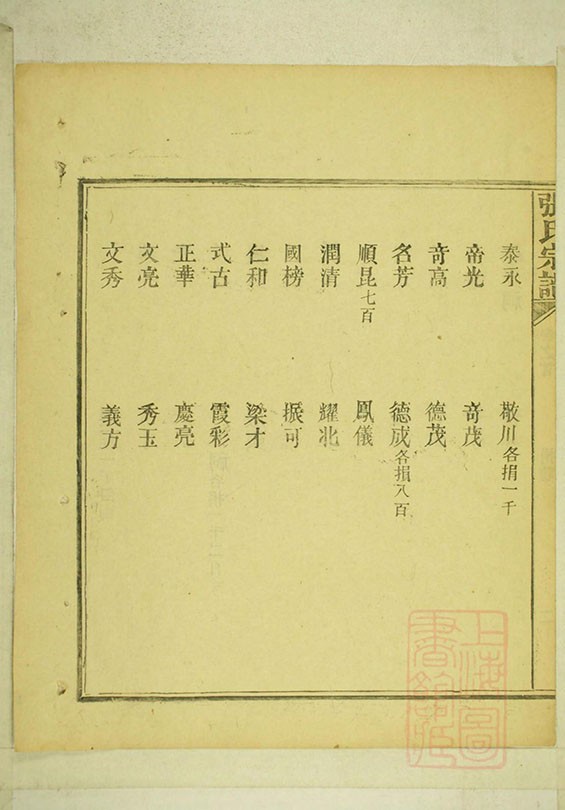 張氏宗譜
泰永 敬川各捐一千
帝光 奇茂
奇高 德茂
名芳 德成各捐八百
順昆七百 鳳儀
潤清 耀北
國榜 振可
仁和 梁才
式古 霞彩
正華 慶亮
文亮 秀玉
文秀 義方
上海圖書館藏